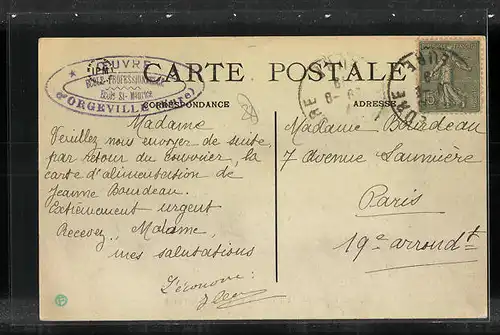 ŒUVRE
ÉCOLE PROFESSIONNELLE
ÉCOLE St-MAURICE
d'ORGEVILLE (Eure)
CARTE POSTALE
CORRESPONDANCE
ADRESSE
EURE
EURE
15
Madame
Veuillez nous envoyer de suite,
par retour du courrier, la
carte d'alimentation de
Jeanne Bourdeau.
Extrêmement urgent
Recevez, Madame,
mes salutations
Madame Bourdeau
7 avenue Laumière
Paris
19e arrondt